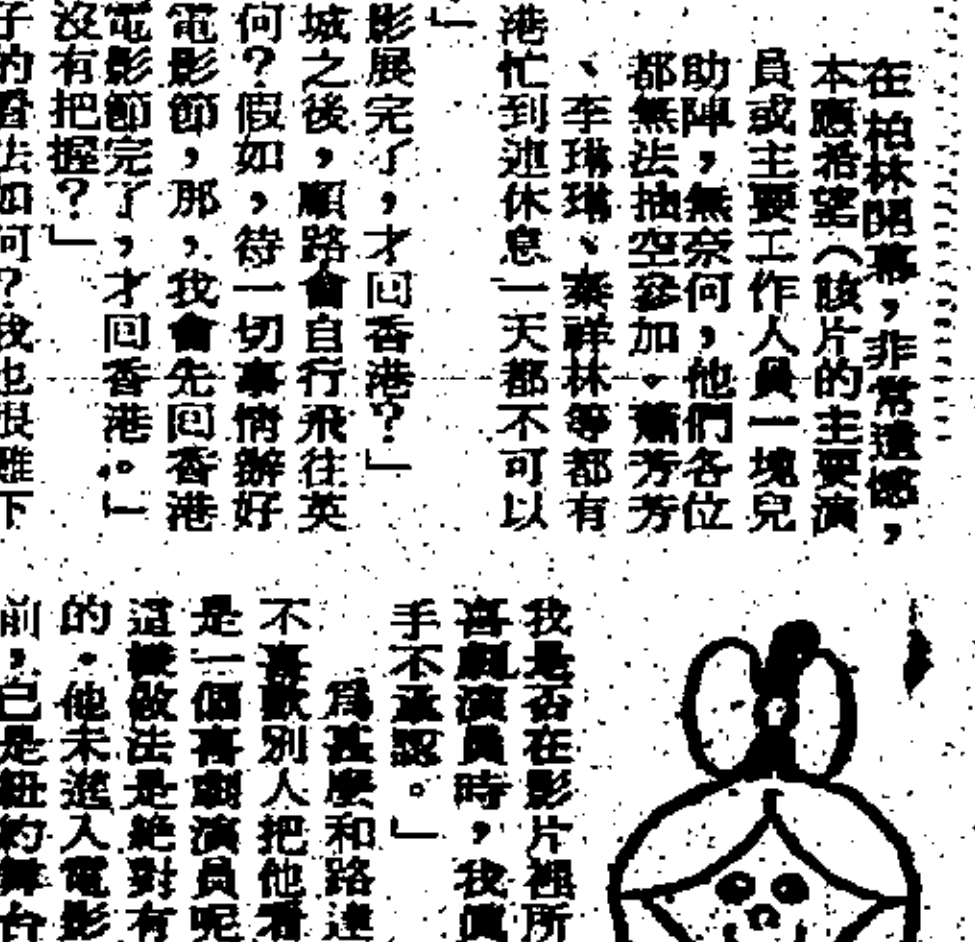 在柏林開幕，非常遺憾，
本應希望（該片的主要演
員或主要工作人員一塊兒
助陣，無奈何，他們各位
都無法抽空參加。蕭芳芳
、李琳琳、秦祥林等都有
港忙到連休息一天都不可以
」
影展完了，才回香港？」
城之後，順路會自行飛往英
何？假如，待一切事情辦好
電影節，那，我會先回香港
電影節完了，才回香港。」
沒有把握？」
子的看法如何？我也很難下
我是否在影片裡所
喜劇演員時，我
手不承認。」
為甚麼和路達
不喜歡別人把他看
是一個喜劇演員呢
這樣做法是絕對有
的。他未進入電影
前，已是紐約舞台